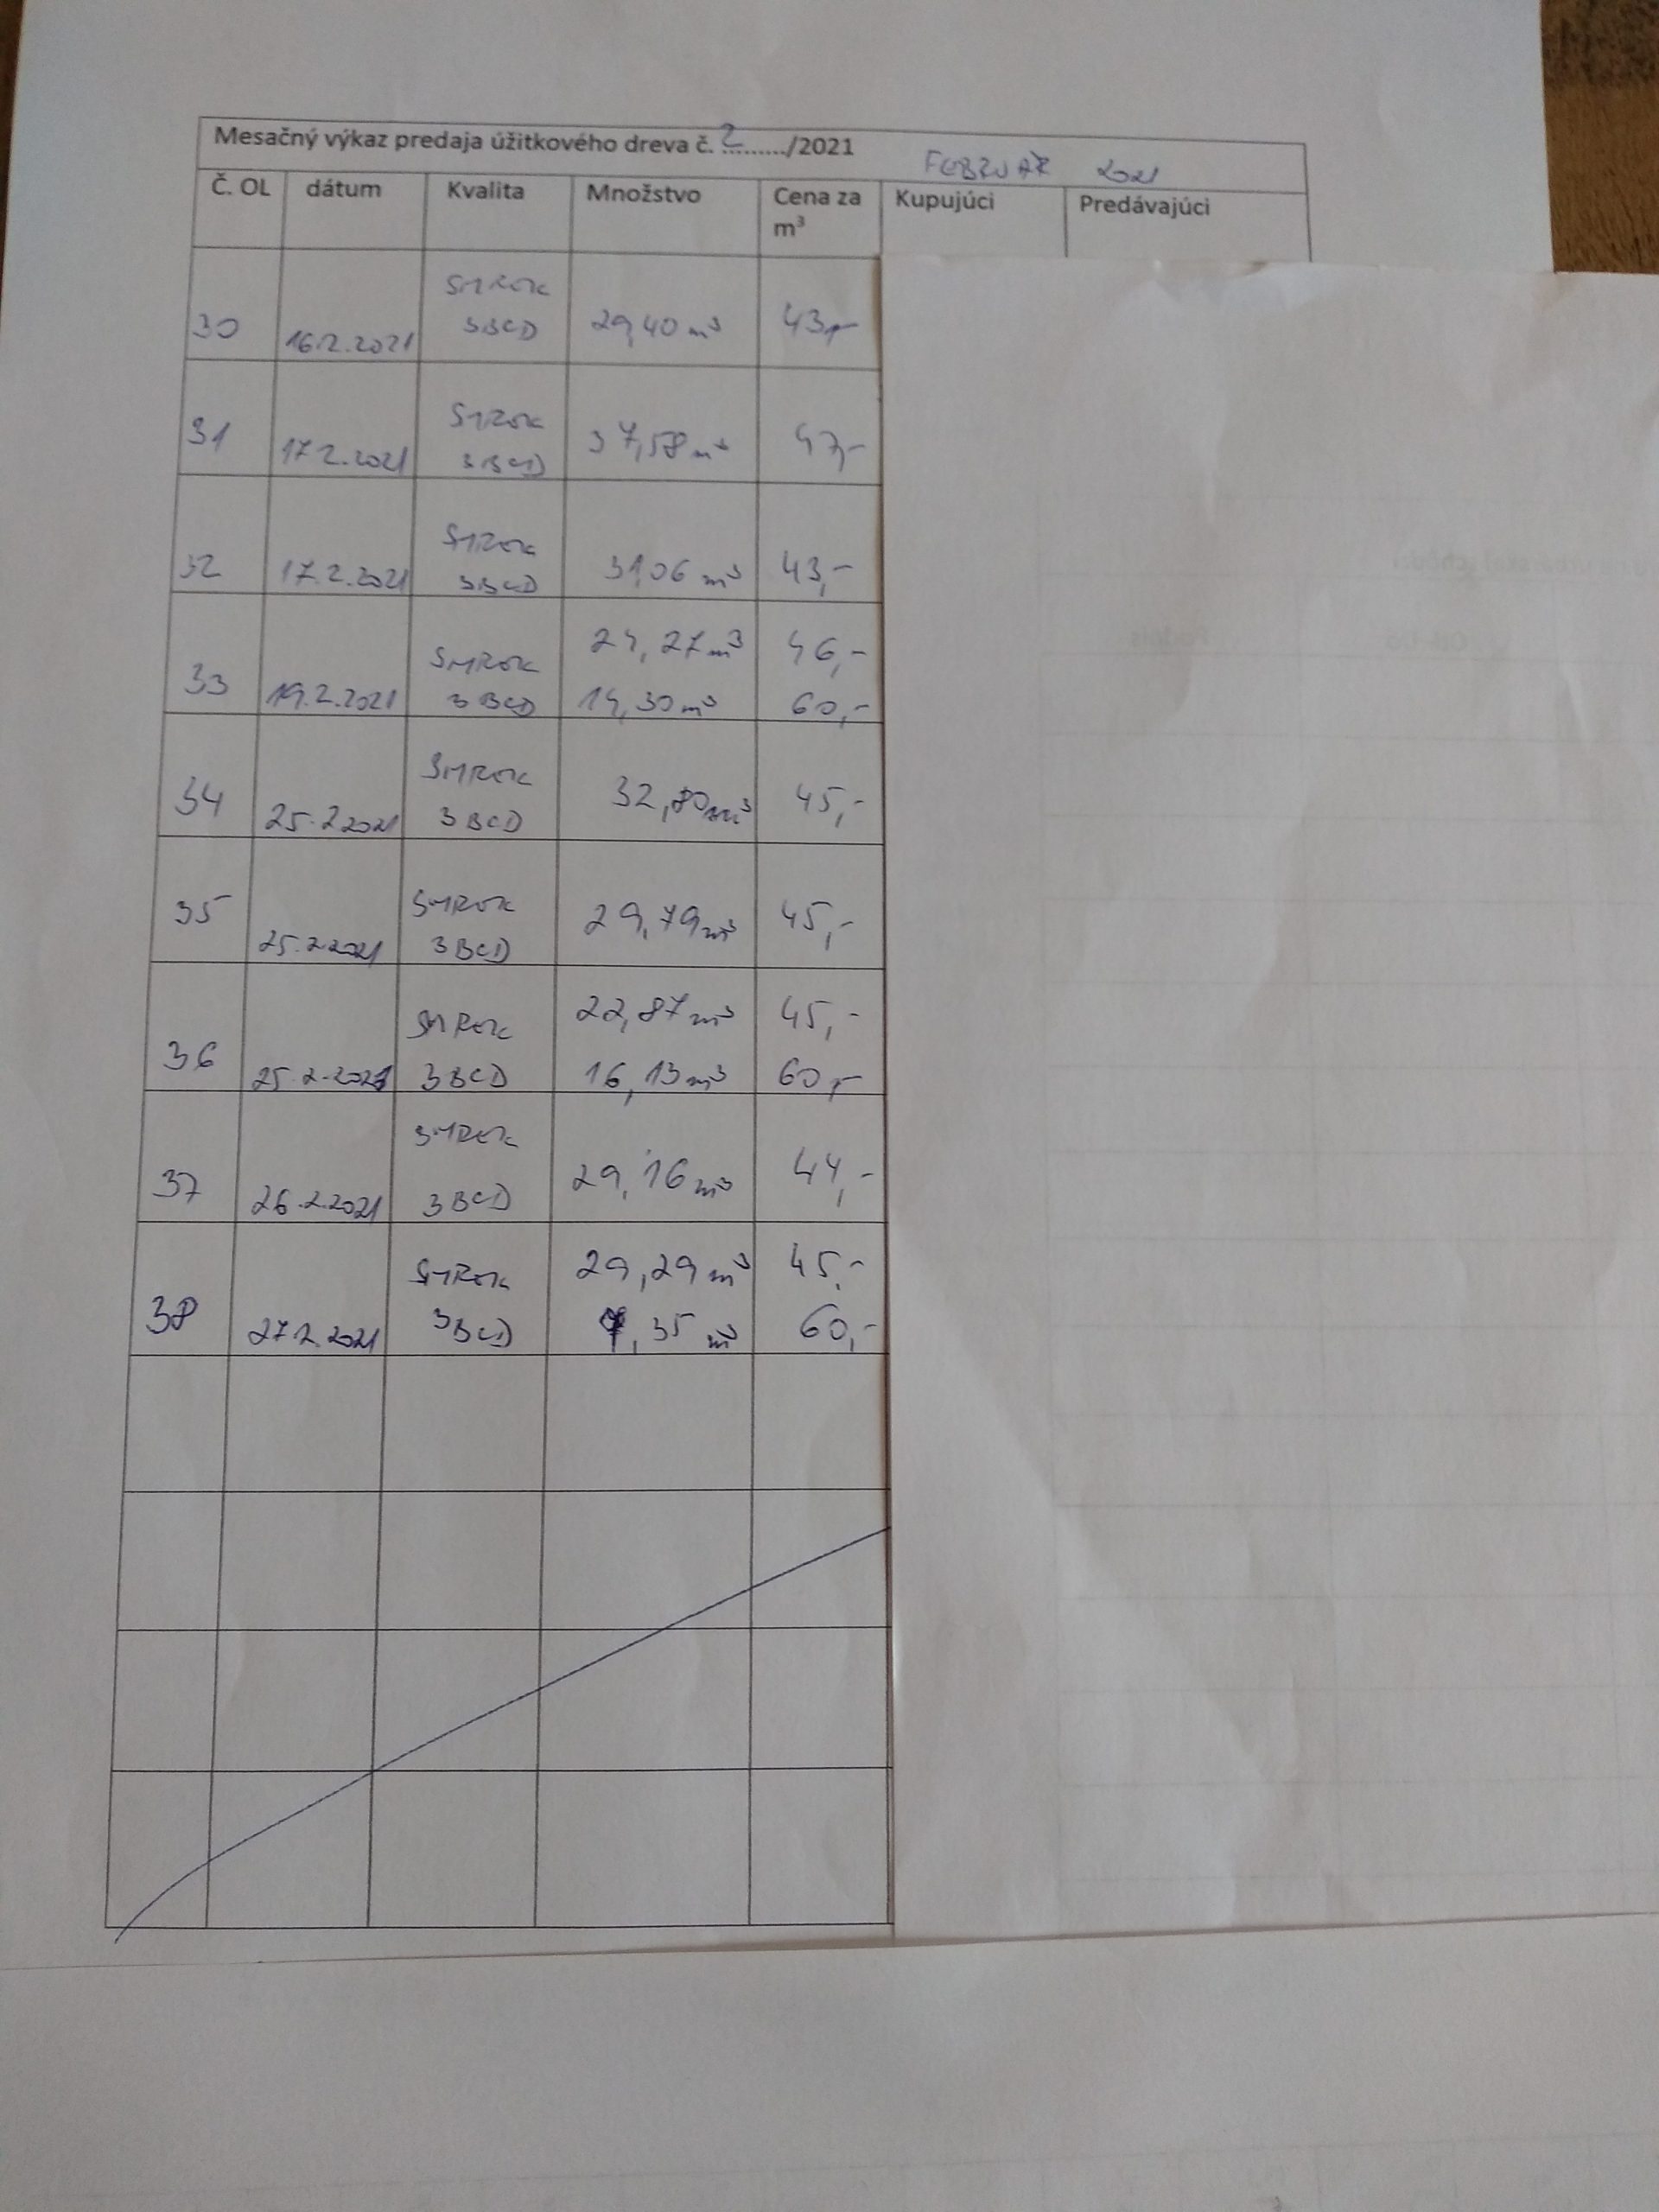 Mesačný výkaz predaja úžitkového dreva č. 2........./2021 FEBRUÁR 2021
Č. OL dátum Kvalita Množstvo Cena za m³ Kupujúci Predávajúci
SMREK
30 16.2.2021 3BCD 29,40 m³ 43,-
SMREK
31 17.2.2021 3BCD 37,58 m³ 47,-
SMREK
32 17.2.2021 3BCD 31,06 m³ 43,-
SMREK 24,27 m³ 46,-
33 19.2.2021 3BCD 14,30 m³ 60,-
SMREK
34 25.2.2021 3BCD 32,80 m³ 45,-
SMREK
35 25.2.2021 3BCD 29,79 m³ 45,-
SMREK 22,87 m³ 45,-
36 25.2.2021 3BCD 16,13 m³ 60,-
SMREK
37 26.2.2021 3BCD 29,16 m³ 44,-
SMREK 29,29 m³ 45,-
38 27.2.2021 3BCD 7,35 m³ 60,-